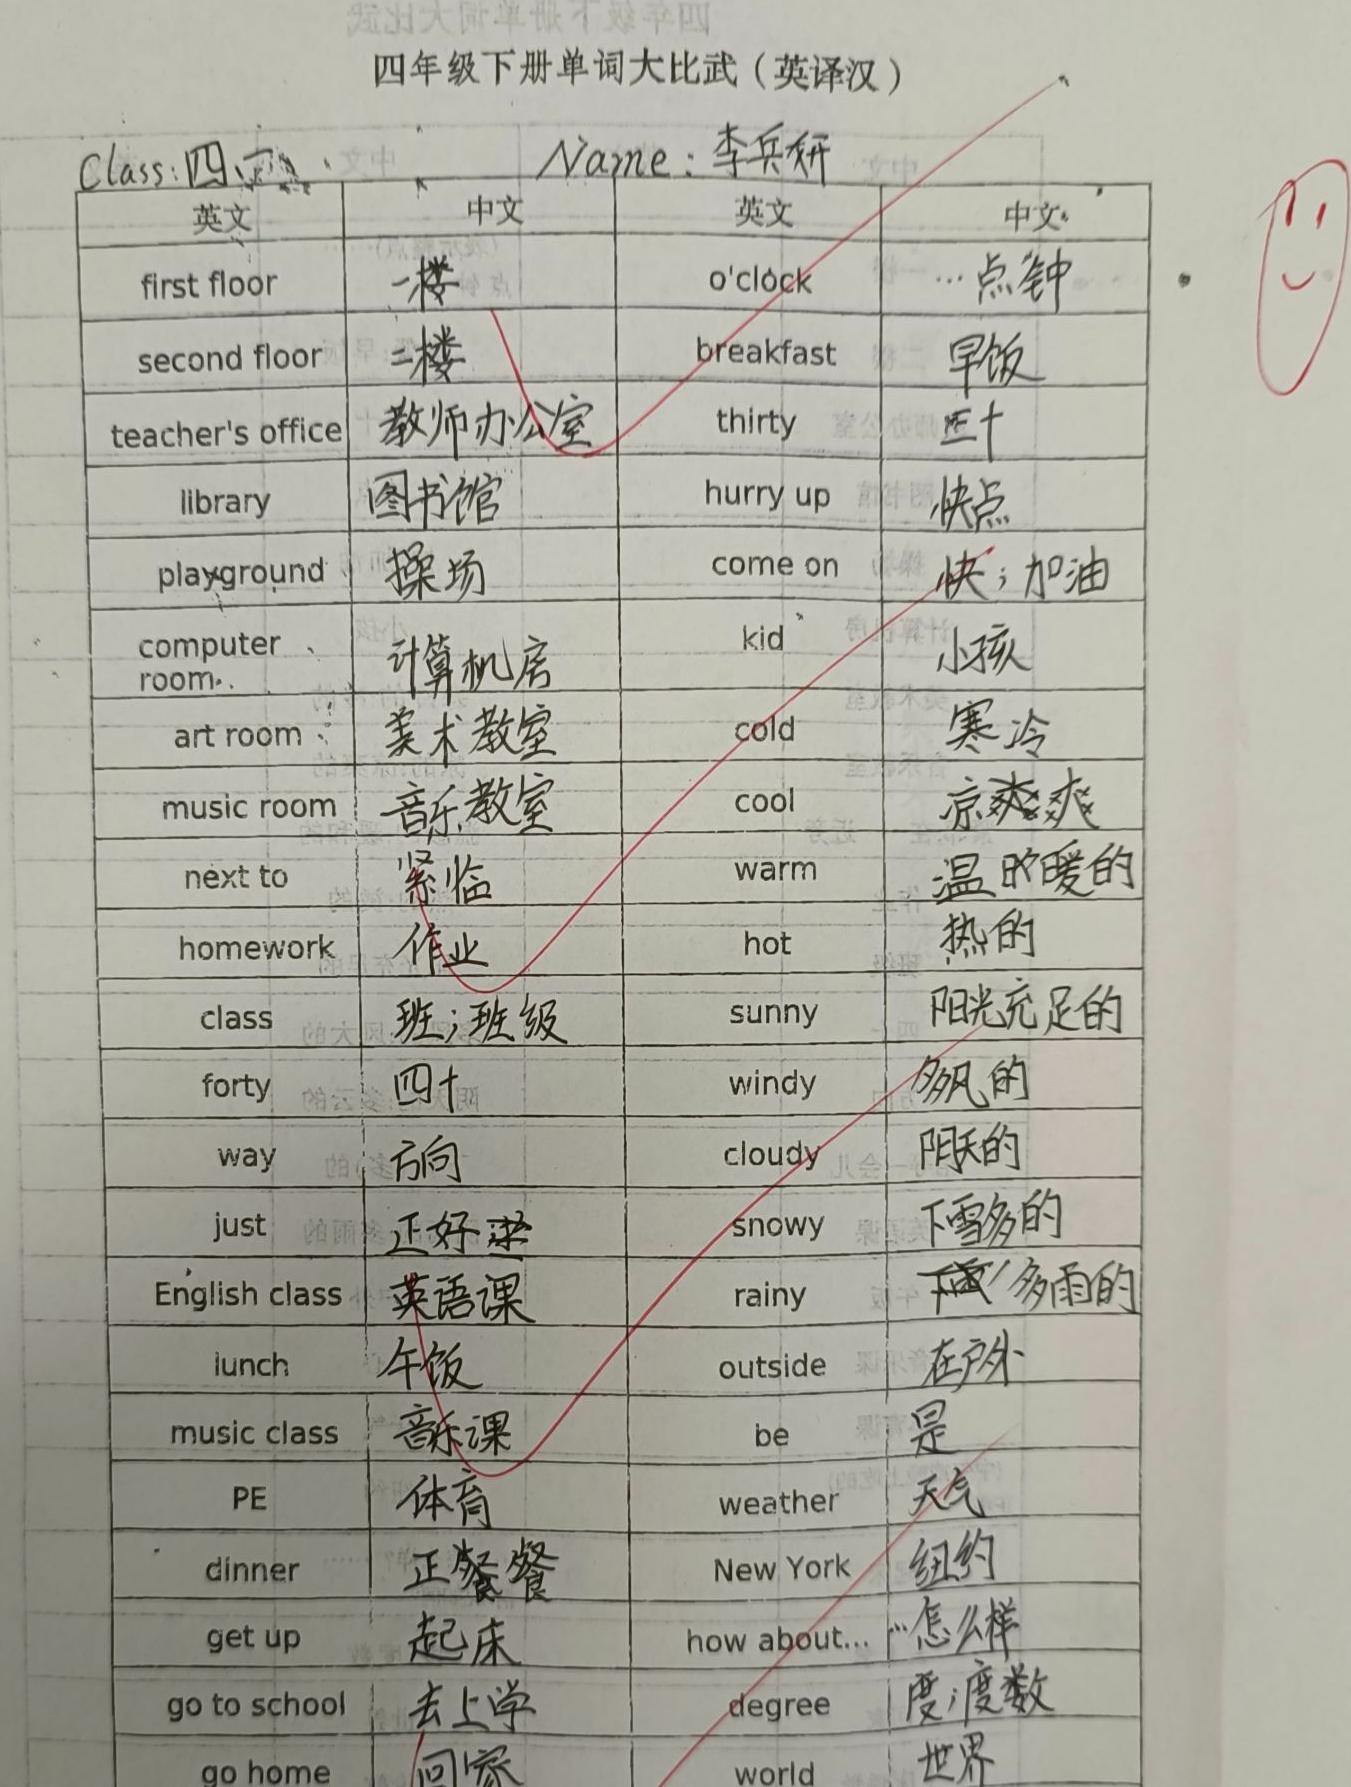 四年级下册单词大比武（英译汉）
Class: 四、 Name: 李兵妍
英文 中文 英文 中文
first floor 一楼 o'clock …点钟
second floor 二楼 breakfast 早饭
teacher's office 教师办公室 thirty 三十
library 图书馆 hurry up 快点
playground 操场 come on 快；加油
computer room 计算机房 kid 小孩
art room 美术教室 cold 寒冷
music room 音乐教室 cool 凉爽
next to 紧临 warm 温暖的
homework 作业 hot 热的
class 班；班级 sunny 阳光充足的
forty 四十 windy 多风的
way 方向 cloudy 阴天的
just 正好 snowy 下雪多的
English class 英语课 rainy 多雨的
lunch 午饭 outside 在户外
music class 音乐课 be 是
PE 体育 weather 天气
dinner 正餐 New York 纽约
get up 起床 how about... …怎么样
go to school 去上学 degree 度；度数
go home 回家 world 世界